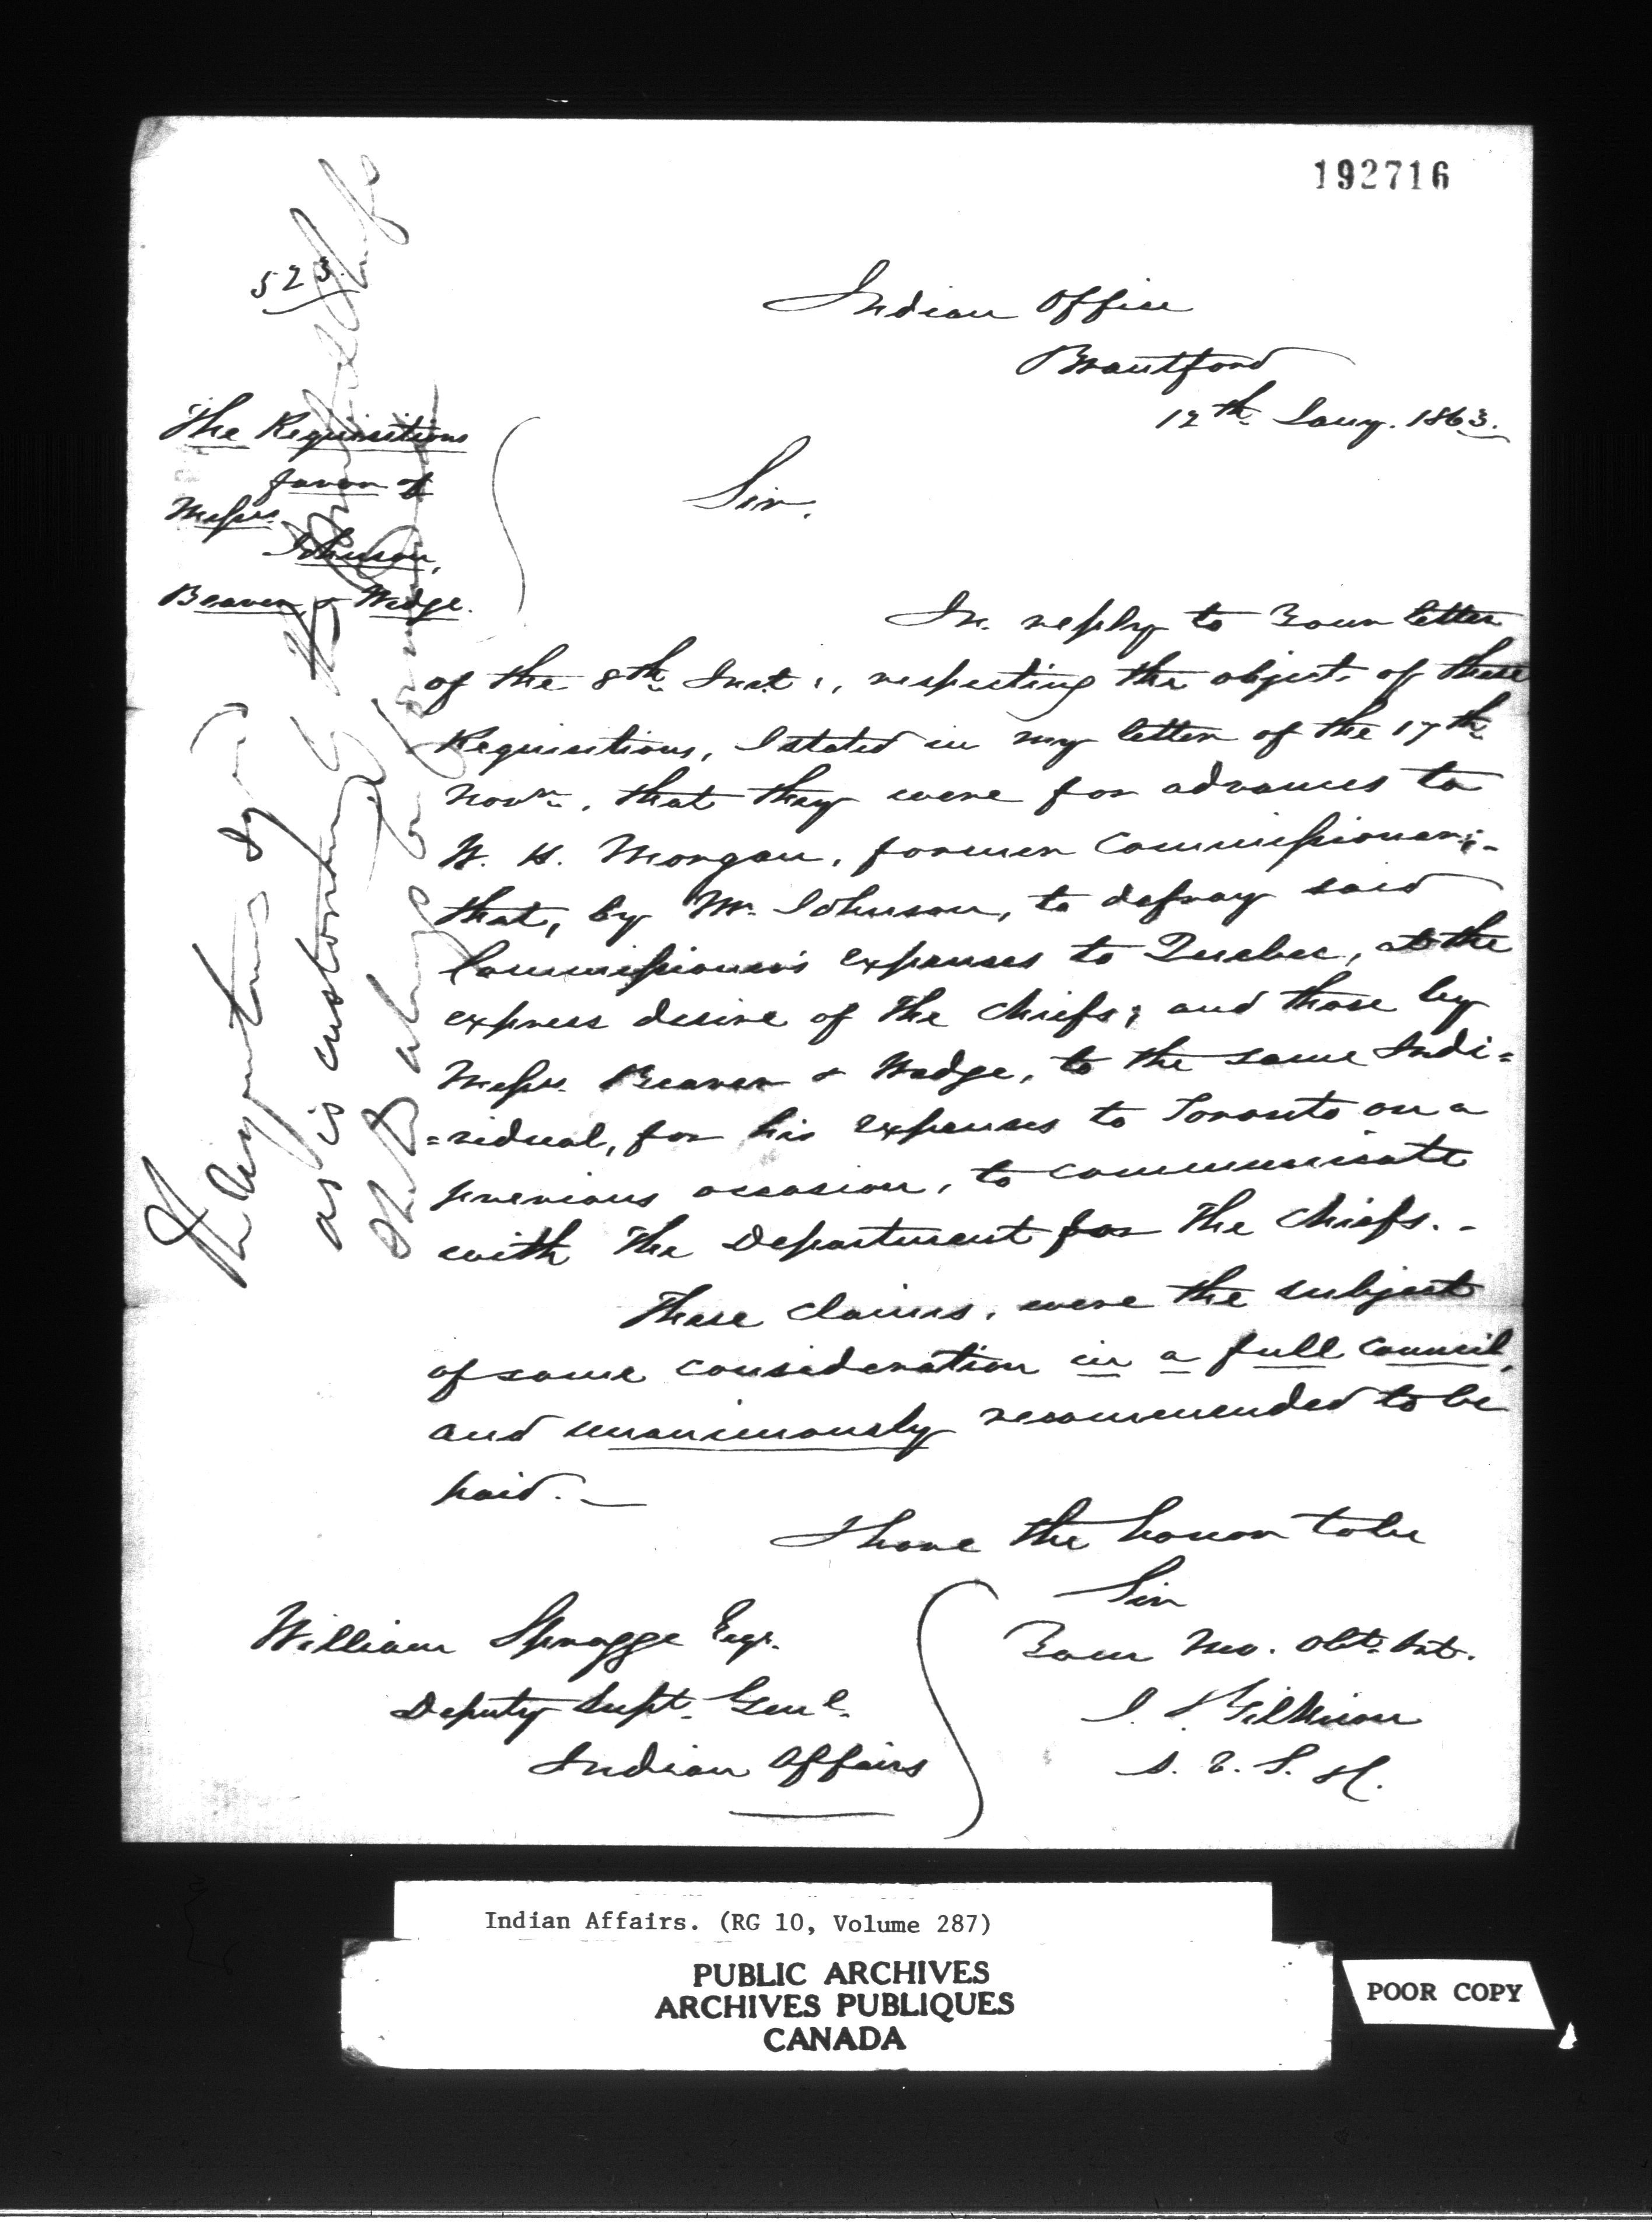 192716
523.
Indian Office
Brantford
12th Jany. 1863.
The Requisitions
favor of
Messrs.
Johnson,
Beaver & Wedge.
Sir.
In reply to Your letter
of the 8th Inst:, respecting the objects of these
Requisitions, I stated in my letter of the 17th
Novr., that they were for advances to
W. H. Morgan, former Commissioner;-
that, by Mr. Johnson, to defray said
Commissioner's expenses to Quebec, at the
express desire of the Chiefs; and those by
Messrs. Beaver & Wedge, to the same Indi=
=vidual, for his expenses to Toronto on a
previous occasion, to communicate
with the Department for the Chiefs.-
These claims, were the subject
of some consideration in a full Council,
and unanimously recommended to be
paid.—
I have the honor to be
Sir
Your Mo. Obt. Svt.
J. T. Gilkison
William Spragge Esqr.
Deputy Supt. Genl.
Indian Affairs
as is customary
always be
Indian Affairs. (RG 10, Volume 287)
PUBLIC ARCHIVES
ARCHIVES PUBLIQUES
CANADA
POOR COPY